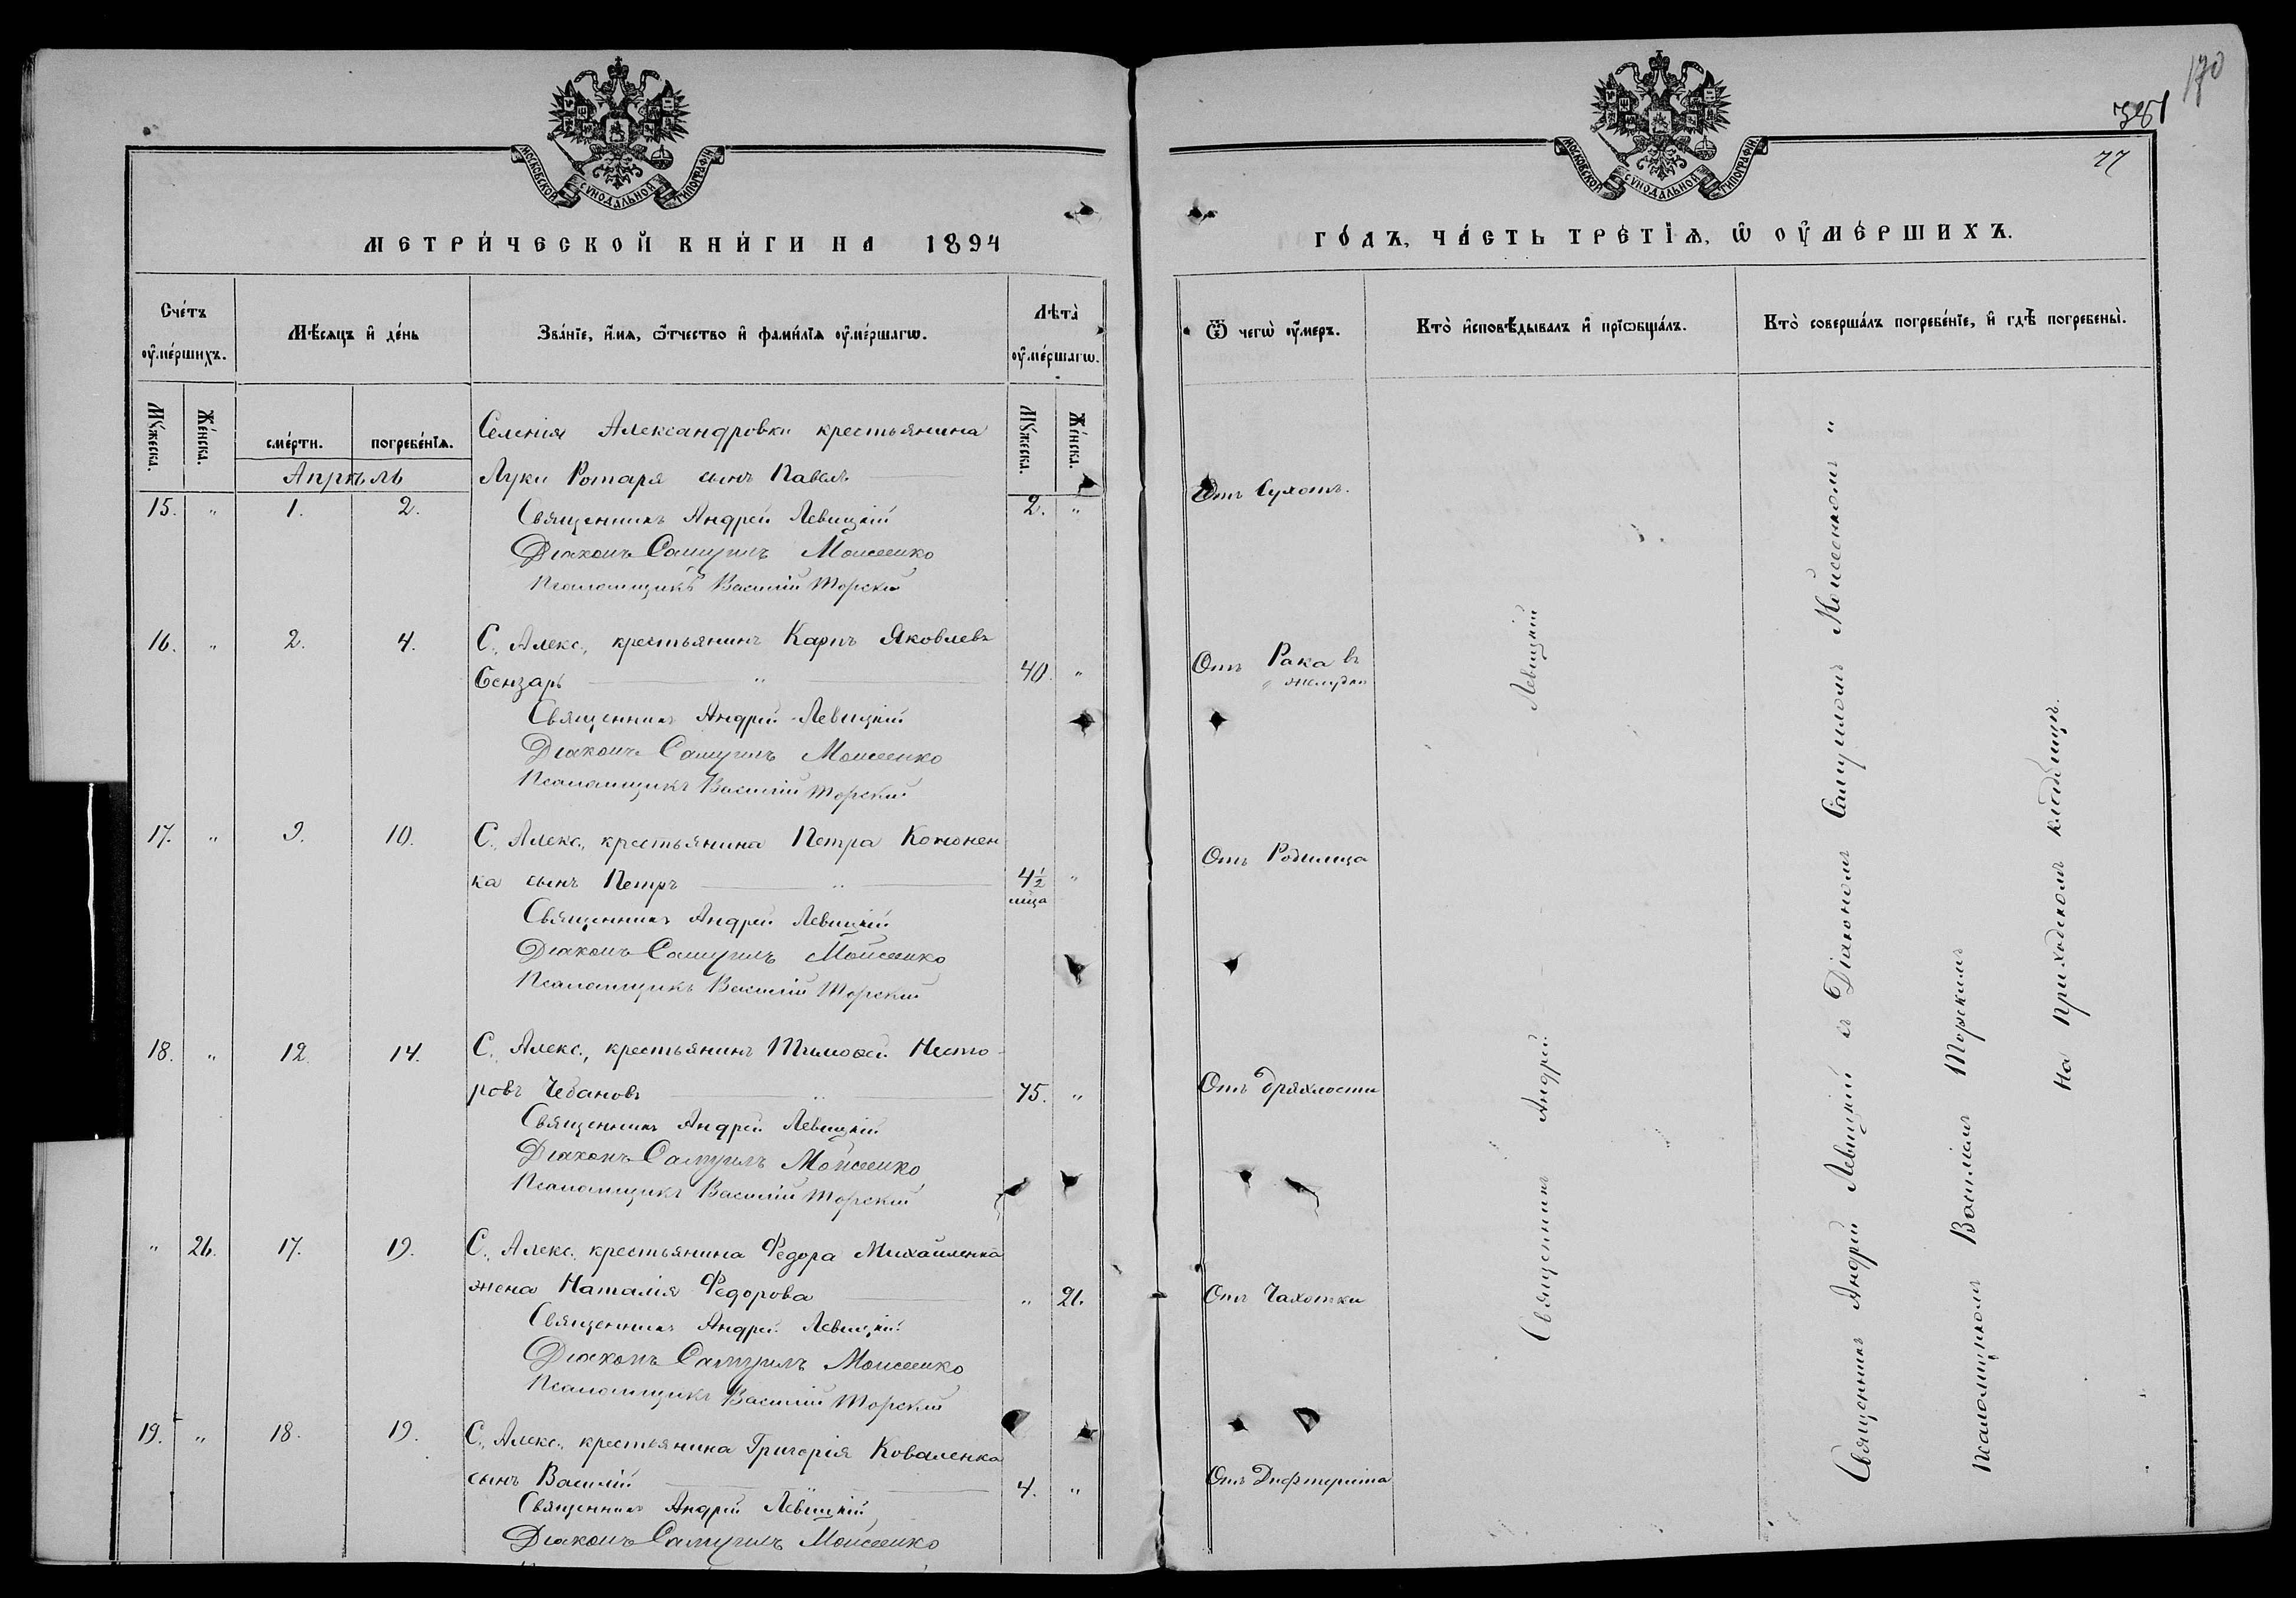 МОСКОВСКОЙ СѴНОДАЛЬНОЙ ТИПОГРАФІИ
МЕТРИ́ЧЕСКОЙ КНИ́ГИ НА 1894
Сче́тъ ᲂу҆ме́ршихъ.
Мѣ́сяцъ и҆ де́нь
Зва́нїе, и҆́мѧ, ѻ҆́тчество и҆ фами́лїѧ ᲂу҆ме́ршагѡ.
Лѣта̀ ᲂу҆ме́ршагѡ.
Мꙋ́жеска.
Же́нска.
сме́рти.
погребе́нїѧ.
Мꙋ́жеска.
Же́нска.
Апрѣль
Селенія Александровки крестьянина
Луки Ротаря сынъ Павелъ
15. " 1. 2. 2. "
Священникъ Андрей Левицкій
Діаконъ Самуилъ Моисеенко
Псаломщикъ Василій Торскій
16. " 2. 4. С., Алекс., крестьянинъ Карпъ Яковлевъ
Бензарь " 40. "
Священникъ Андрей Левицкій
Діаконъ Самуилъ Моисеенко
Псаломщикъ Василій Торскій
17. " 9. 10. С., Алекс., крестьянина Петра Кононен
ка сынъ Петръ " 4½ "
мца
Священникъ Андрей Левицкій
Діаконъ Самуилъ Моисеенко
Псаломщикъ Василій Торскій
18. " 12. 14. С., Алекс., крестьянинъ Тимофей Несто-
ровъ Чебановъ " 75. "
Священникъ Андрей Левицкій
Діаконъ Самуилъ Моисеенко
Псаломщикъ Василій Торскій
" 26. 17. 19. С., Алекс., крестьянина Федора Михайленка
жена Наталія Федорова " 21.
Священникъ Андрей Левицкій
Діаконъ Самуилъ Моисеенко
Псаломщикъ Василій Торскій
19. " 18. 19. С., Алекс., крестьянина Григорія Коваленка
сынъ Василій " 4. "
Священникъ Андрей Левицкій
Діаконъ Самуилъ Моисеенко
170
381
77
МОСКОВСКОЙ СѴНОДАЛЬНОЙ ТИПОГРАФІИ
ГО́ДЪ, ЧА́СТЬ ТРЕ́ТЇѦ, Ѡ҆ ОУ҆МЕ́РШИХЪ.
Ѿ чегѡ̀ ᲂу҆́меръ.
Кто̀ и҆сповѣ́дывалъ и҆ прїѡбща́лъ.
Кто̀ соверша́лъ погребе́нїе, и҆ гдѣ̀ погребены̀.
Отъ Сухотъ.
Отъ Рака въ
желудкѣ
Отъ Родимца
Отъ дряхлости
Отъ Чахотки
Отъ Дифтерита
Священникъ Андрей Левицкій
Священникъ Андрей Левицкій съ Діакономъ Самуиломъ Моисеенкомъ "
Псаломщикомъ Василіемъ Торскимъ
На приходскомъ кладбищѣ.